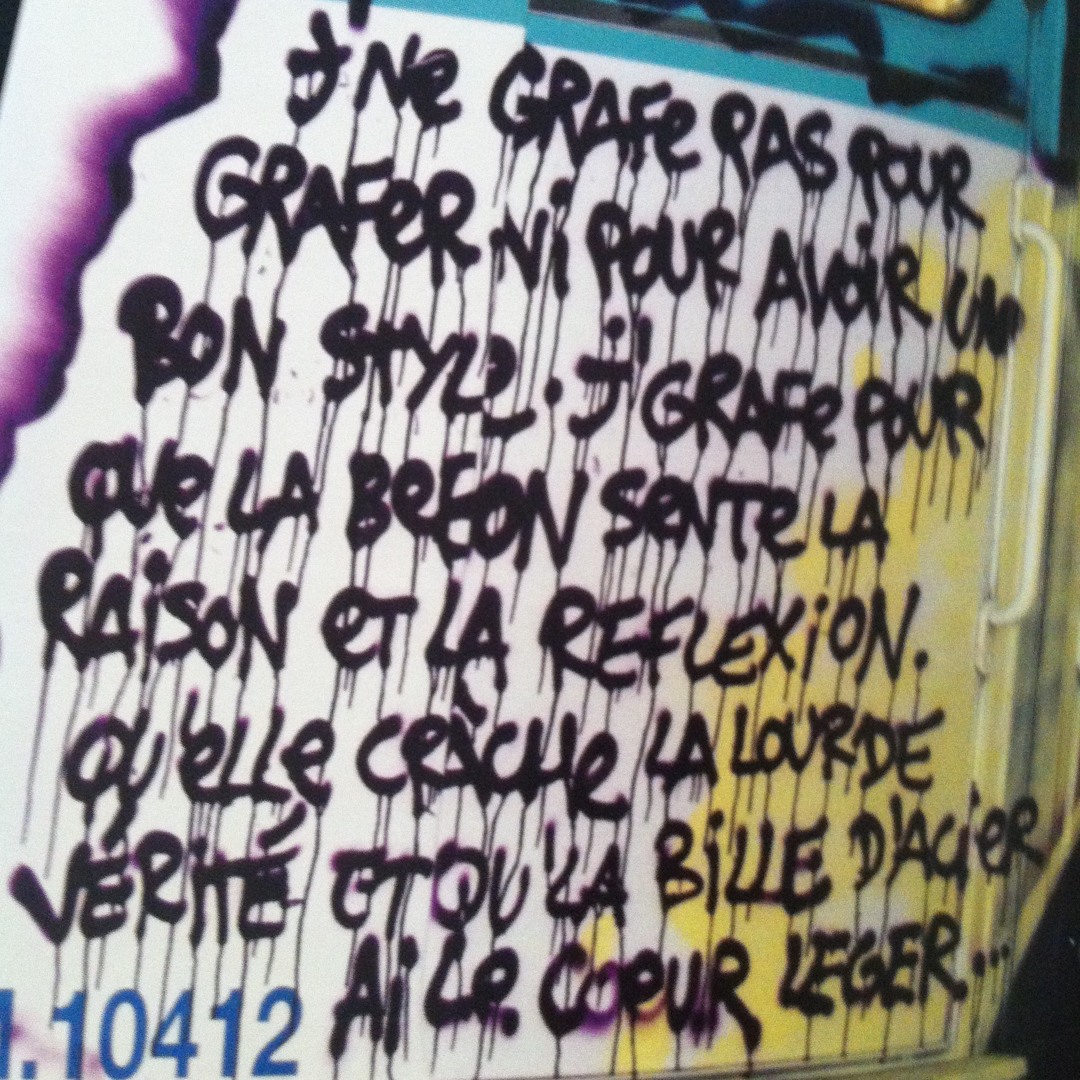 J'NE GRAFE PAS POUR
GRAFER Ni POUR AVOiR UN
BON STYLE. J'GRAFE POUR
QUE LA BEBON SENTE LA
RAiSON ET LA REFLEXiON.
QU'ELLE CRÀCHE LA LOURDE
VÉRiTÉ ET QU'LA BiLLE D'ACiER
Ai LE COEUR LEGER...
.10412